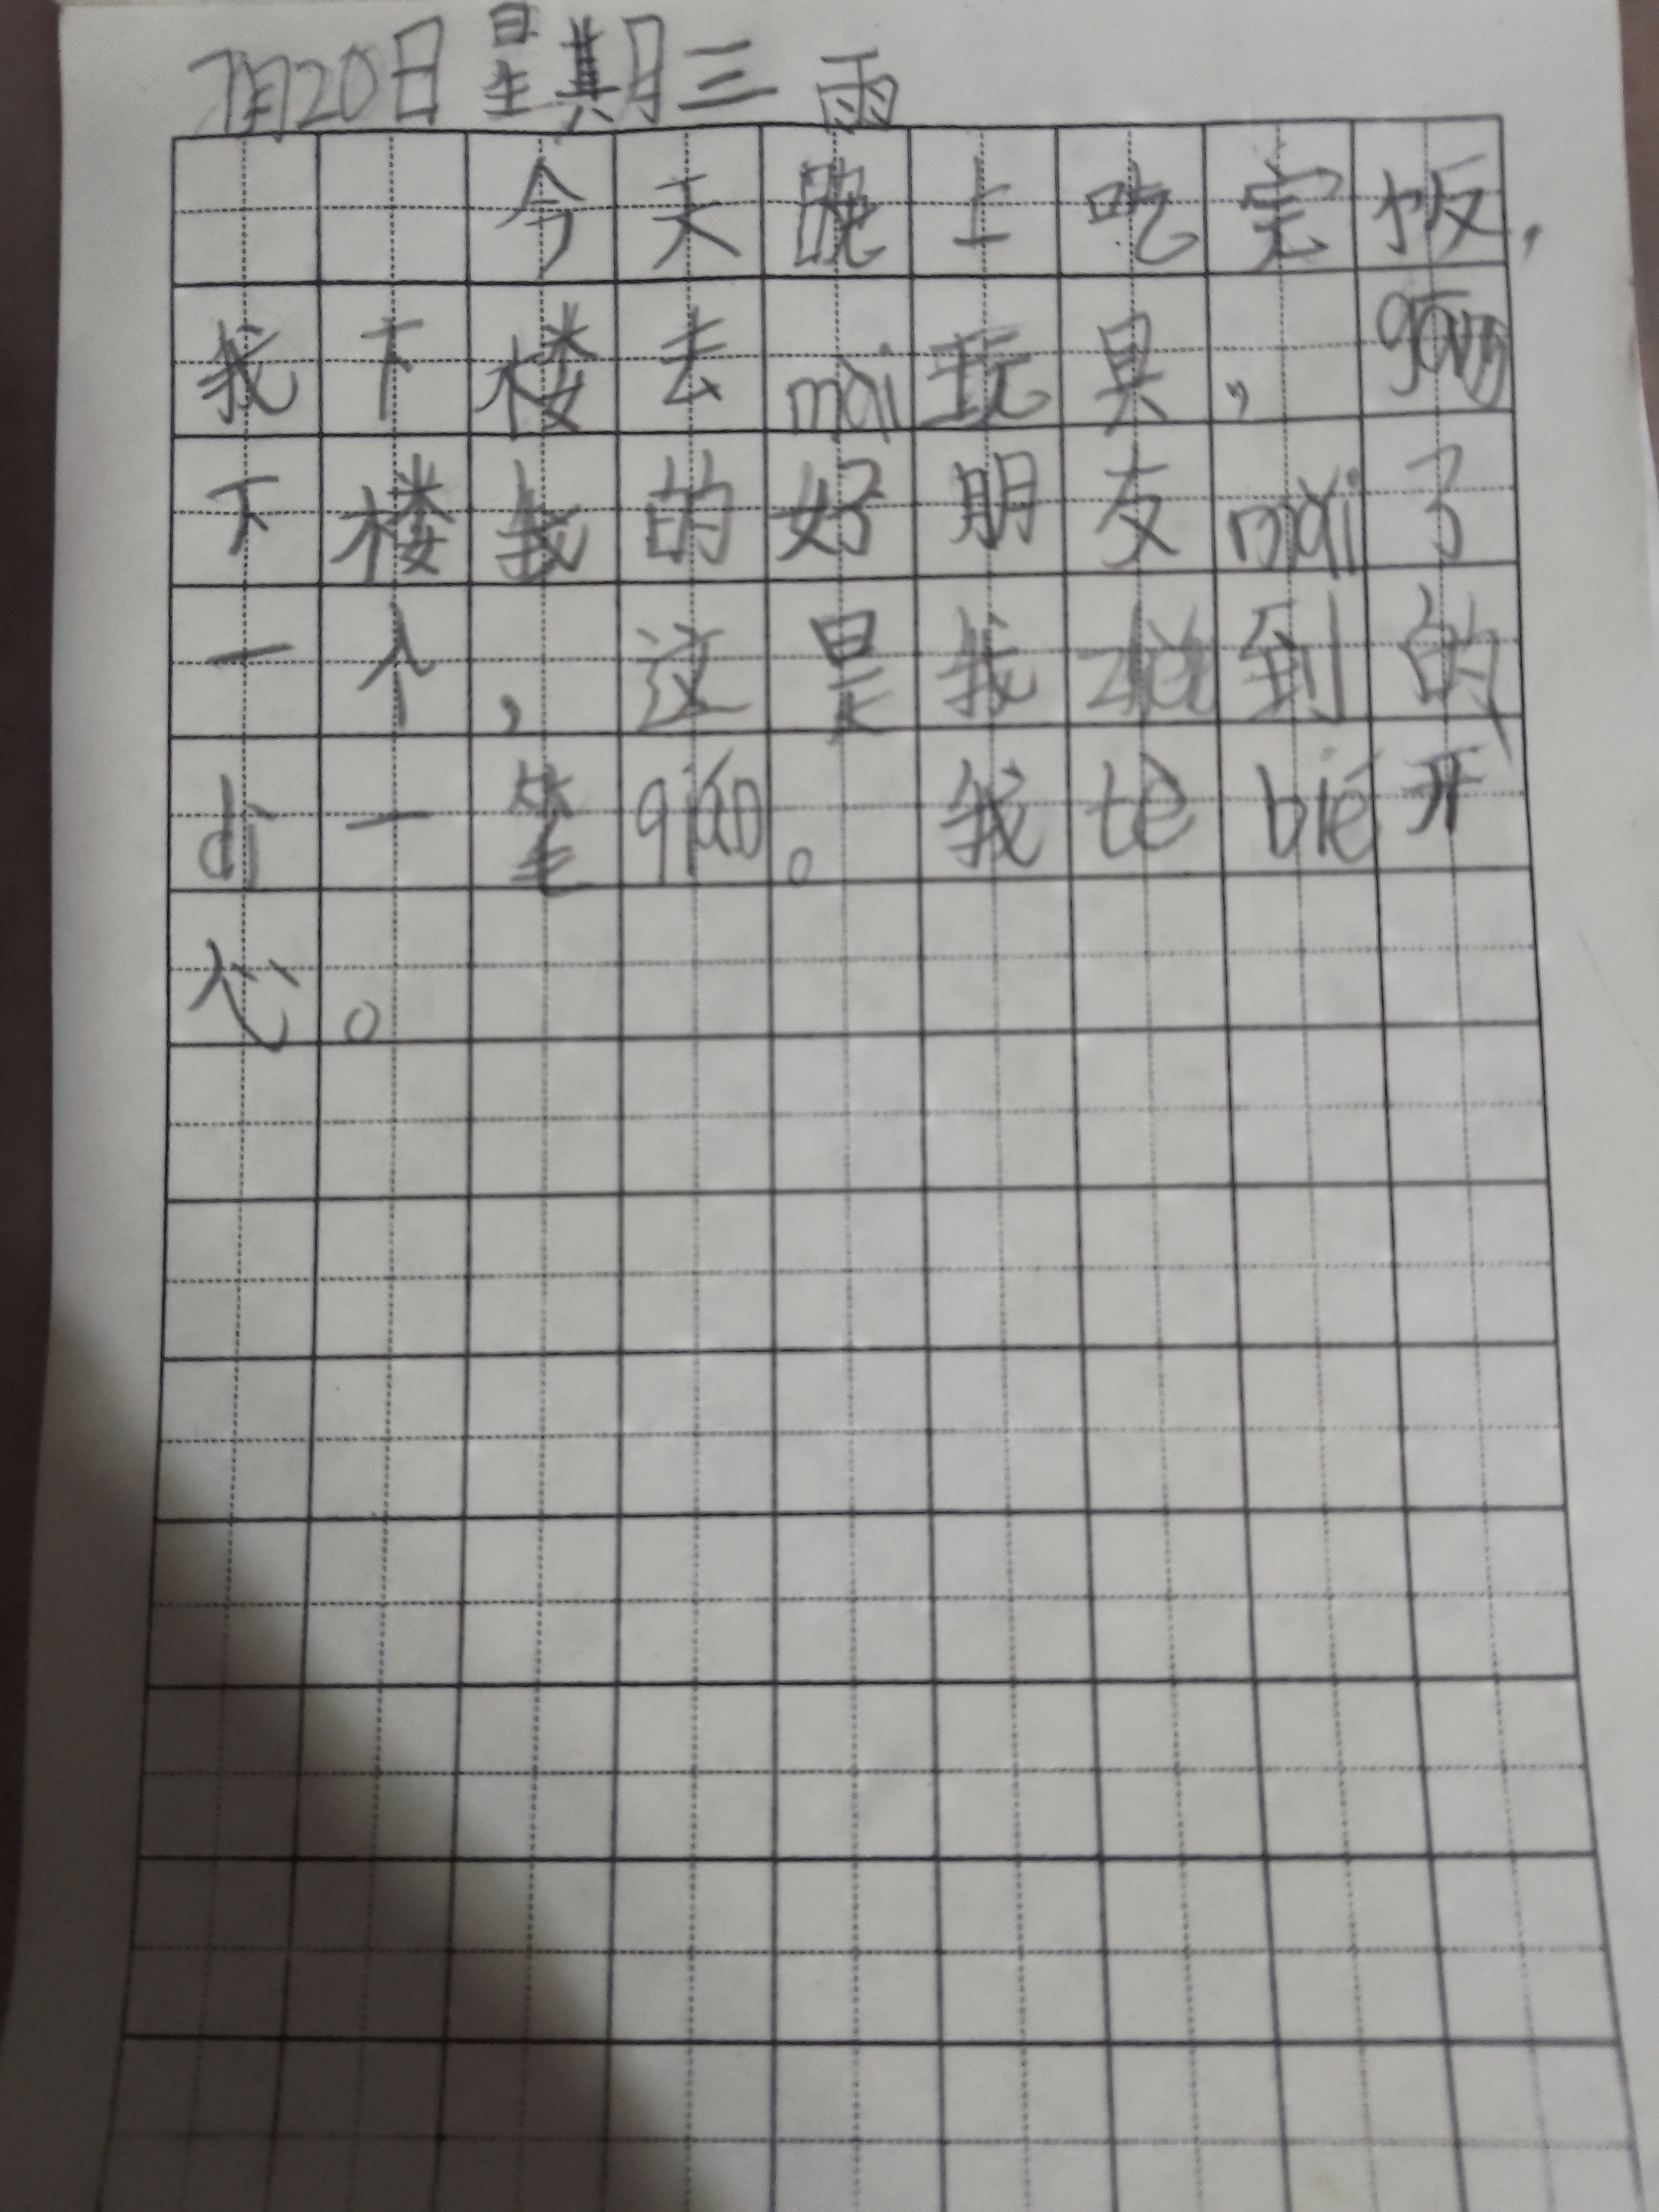 7月20日星期三 雨
今天晚上吃完饭,
我下楼去mài玩具,gāng
下楼我的好朋友mǎi了
一个,这是我 到的
dì一笔qián。我tè bié开
心。